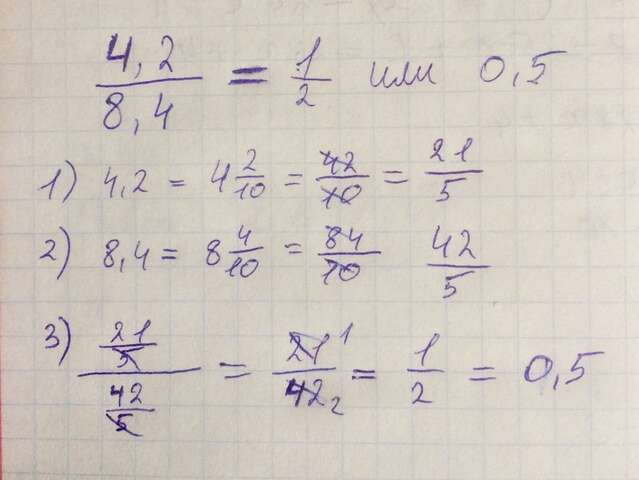 4,2/8,4 = 1/2 или 0,5
1) 4,2 = 4 2/10 = 42/10 = 21/5
2) 8,4 = 8 4/10 = 84/10 42/5
3) (21/5)/(42/5) = 21 1/42 2 = 1/2 = 0,5